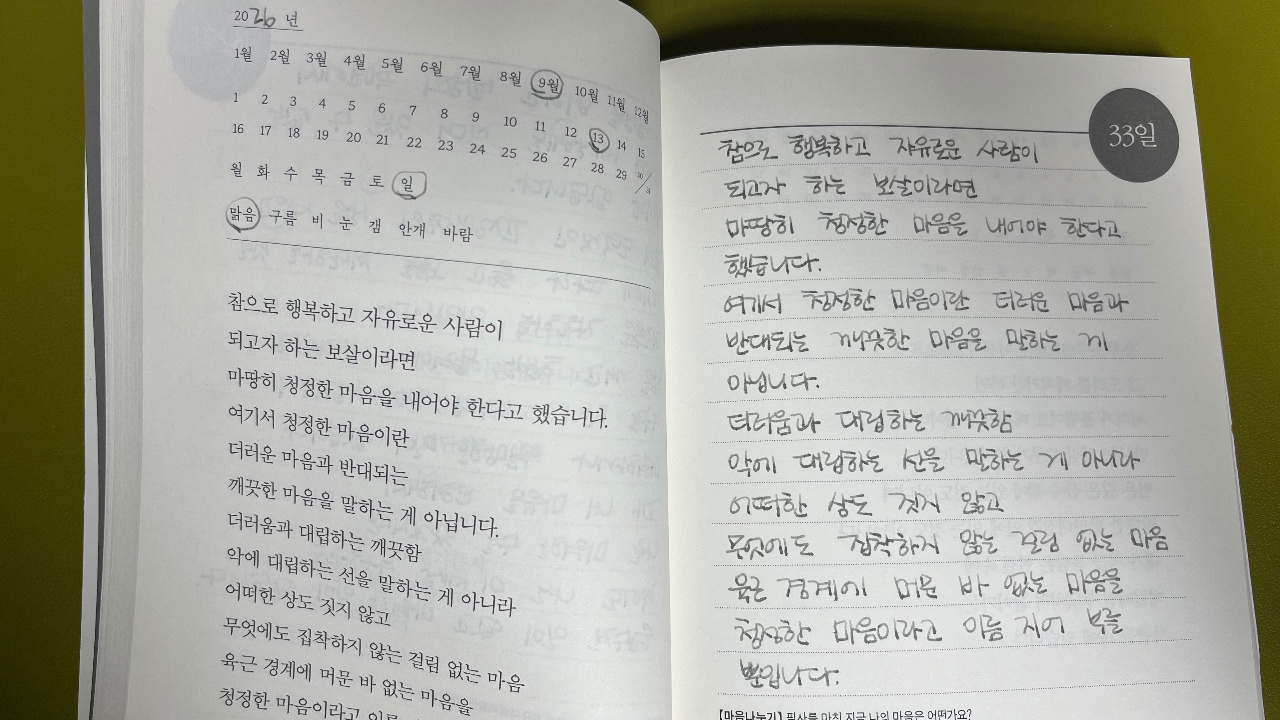 2026 년
1월 2월 3월 4월 5월 6월 7월 8월 9월 10월 11월 12월
1 2 3 4 5 6 7 8 9 10 11 12 13 14 15
16 17 18 19 20 21 22 23 24 25 26 27 28 29 30/31
월 화 수 목 금 토 일
맑음 구름 비 눈 갬 안개 바람
참으로 행복하고 자유로운 사람이
되고자 하는 보살이라면
마땅히 청정한 마음을 내어야 한다고 했습니다.
여기서 청정한 마음이란
더러운 마음과 반대되는
깨끗한 마음을 말하는 게 아닙니다.
더러움과 대립하는 깨끗함
악에 대립하는 선을 말하는 게 아니라
어떠한 상도 짓지 않고
무엇에도 집착하지 않는 걸림 없는 마음
육근 경계에 머문 바 없는 마음을
청정한 마음이라고 이름
33일
참으로 행복하고 자유로운 사람이
되고자 하는 보살이라면
마땅히 청정한 마음을 내어야 한다고
했습니다.
여기서 청정한 마음이란 더러운 마음과
반대되는 깨끗한 마음을 말하는 게
아닙니다.
더러움과 대립하는 깨끗함
악에 대립하는 선을 말하는 게 아니라
어떠한 상도 짓지 않고
무엇에도 집착하지 않는 걸림 없는 마음
육근 경계에 머문 바 없는 마음을
청정한 마음이라고 이름 지어 부를
뿐입니다.
[마음나누기] 필사를 마친 지금 나의 마음은 어떤가요?